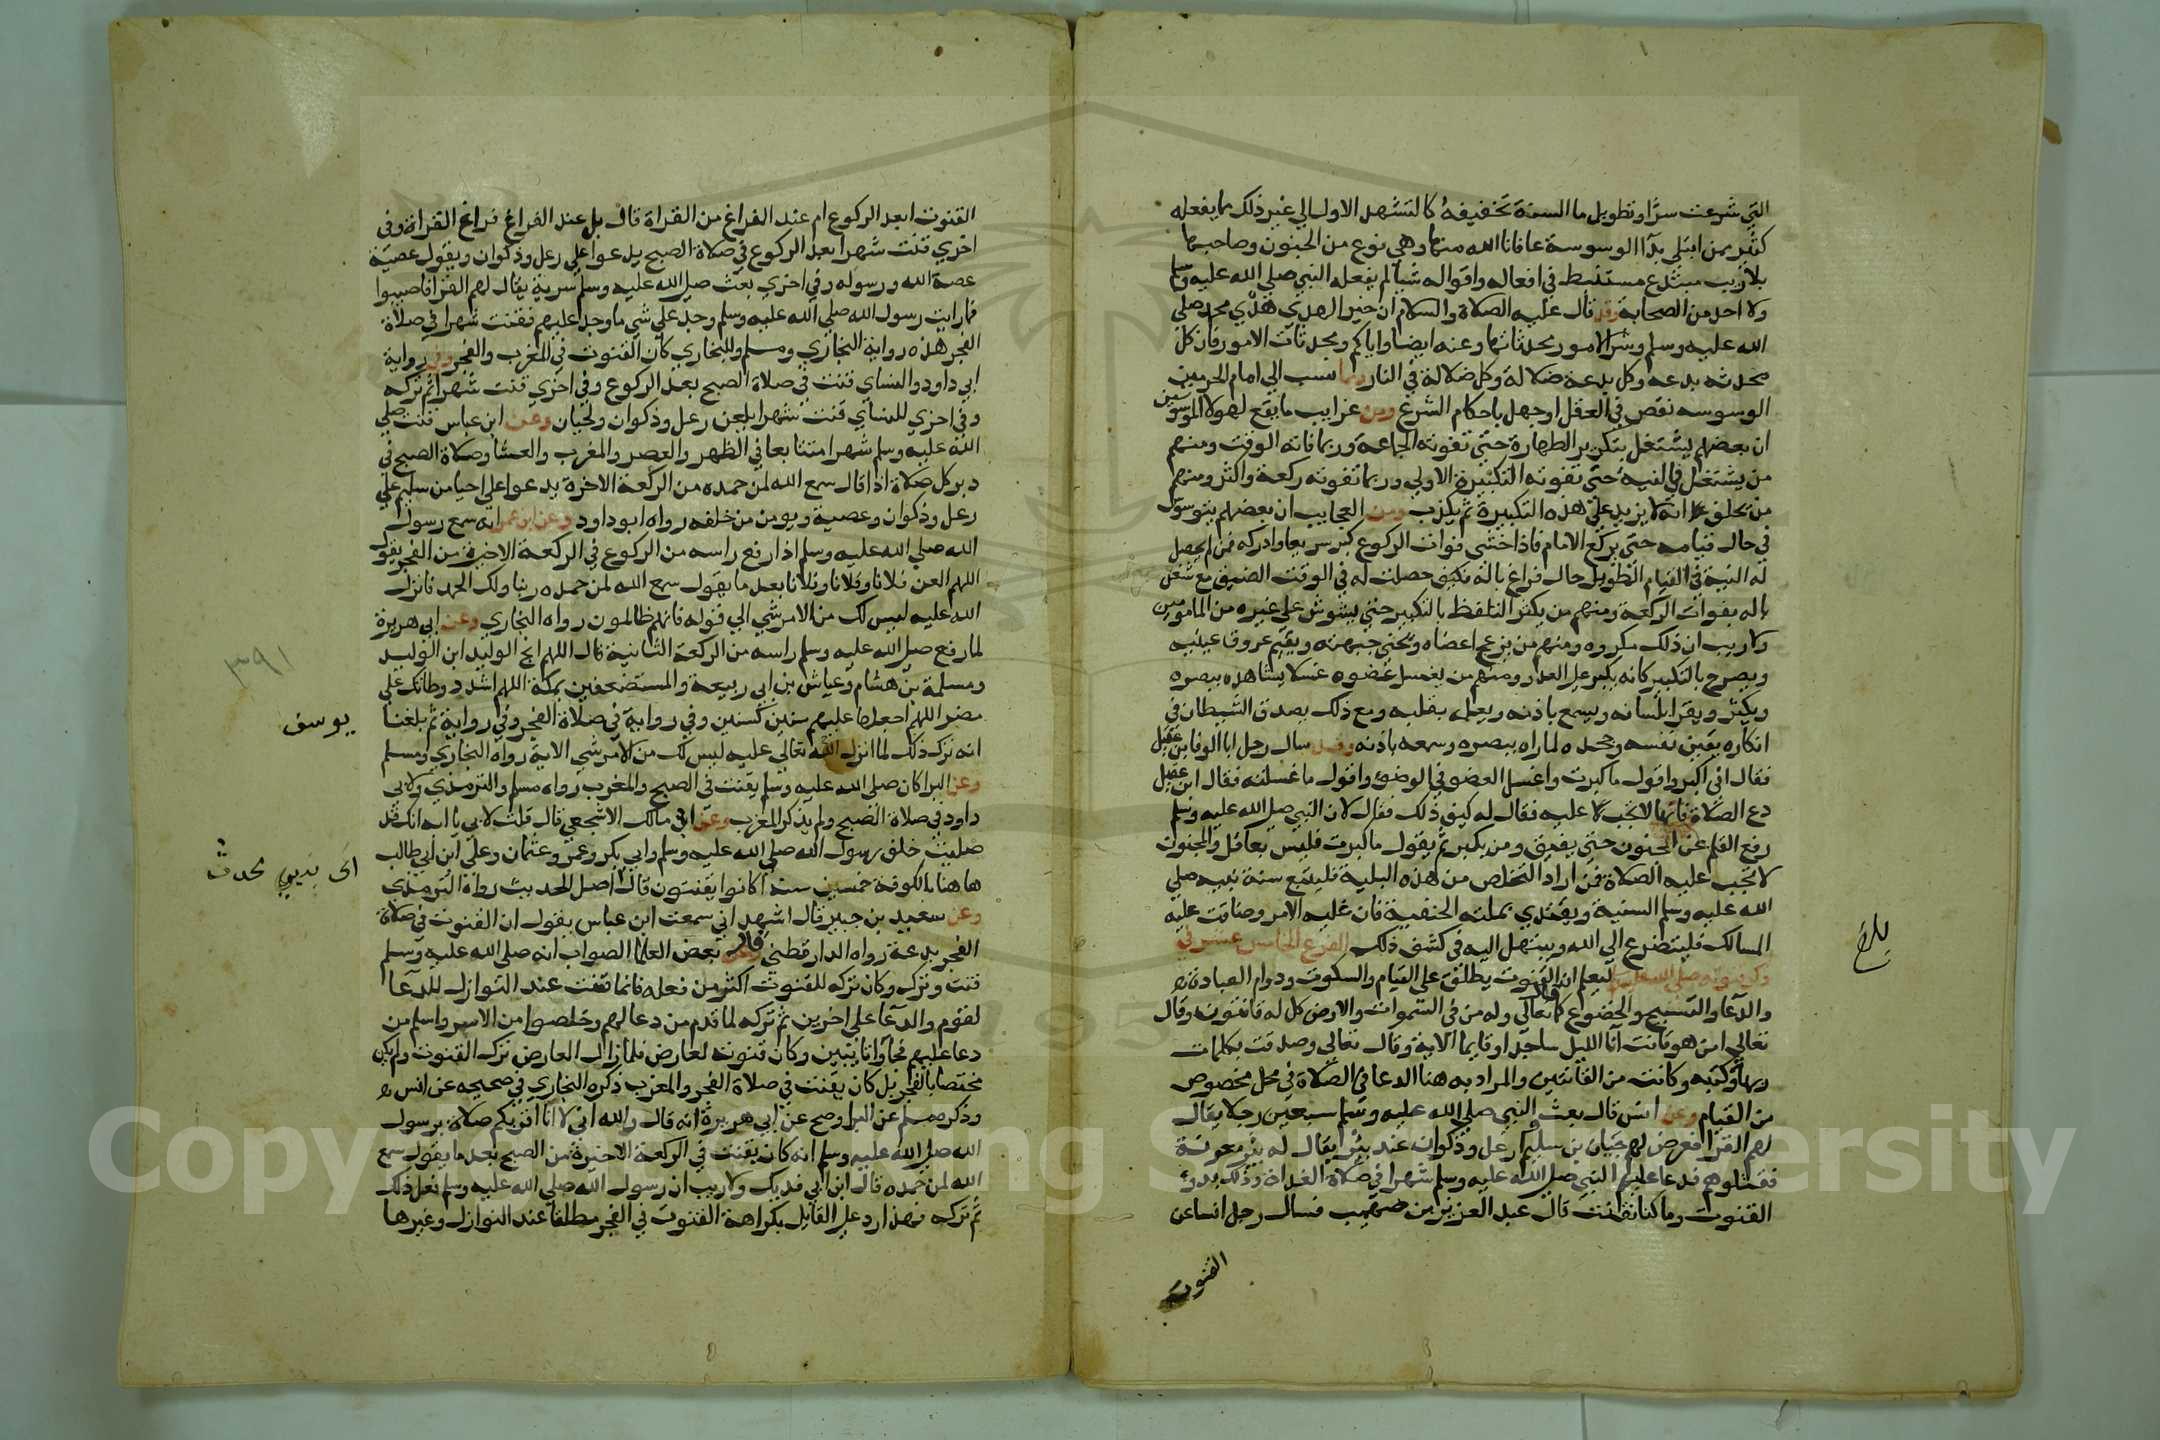 التي شرعت سرا وتطويل ما السنة تخفيفه كالتشهد الاول الي غير ذلك مما يفعله
كثير ممن ابتلي بدآ الوسوسة عافانا الله منها وهي نوع من الجنون وصاحبها
بلاريب مبتدع مستنبط في افعاله واقواله شيا لم يفعله النبي صلي الله عليه وسلم
ولا احد من الصحابة وقد قال عليه الصلاة والسلام ان خير الهدي هدي محمد صلي
الله عليه وسلم وشر الامور محدثاتها وعنه ايضا واياكم ومحدثات الامور فان كل
محدثه بدعه وكل بدعة ضلالة وكل ضلالة في النار ومما نسب الي امام الحرمين
الوسوسه نقص في العقل او جهل باحكام الشرع ومن غرايب ما يقع لهولا الموسوسين
ان بعضهم يشتغل بتكرير الطهارة حتي تفوته الجماعة وربما فاته الوقت ومنهم
من يشتغل في النيه حتي تفوته التكبيرة الاولي وربما تفوته ركعة واكثر ومنهم
من يحلف انه لا يزيد علي هذه التكبيرة ثم يكذب ومن العجايب ان بعضهم يتوسوس
في حال قيامه حتي يركع الامام فاذا خشي فوات الركوع كبر سريعا وادركه فمن لم يحصل
له النية في القيام الطويل حال فراغ باله فكيف حصلت له في الوقت الضيق مع شغل
باله بفوات الركعة ومنهم من يكثر التلفظ بالتكبير حتي يشوش علي غيره من المامومين
ولاريب ان ذلك مكروه ومنهم من يزعج اعضاه ويحني جبهته ويقيم عروق عنقه
ويصرخ بالتكبير كانه يكبر علي العدو ومنهم من يغسل عضوه غسلا يشاهده ببصره
ويكبر ويقرا بلسانه ويسمع باذنه ويعلمه بقلبه ومع ذلك يصدق الشيطان في
انكاره يقين نفسه وجحده لما راه ببصره وسمعه باذنه وقد سال رجل ابا الوفا بن عقيل
فقال اني اكبر واقول ما كبرت واغسل العضو في الوضوء واقول ما غسلته فقال ابن عقيل
دع الصلاة فانها لا تجب عليه فقال له كيف ذلك فقال لان النبي صلي الله عليه وسلم
رفع القلم عن المجنون حتي يفيق ومن يكبر ثم يقول ما كبرت فليس بعاقل والمجنون
لا تجب عليه الصلاة فمن اراد التخلص من هذه البلية فليتبع سنة نبيه صلي
الله عليه وسلم السنية ويقتدي بملته الحنفية فان غلبه الامر وضاقت عليه
المسالك فليتضرع الي الله ويبتهل اليه في كشف ذلك الفرع الخامس عشر في
ذكر قنوته صلي الله عليه وسلم ليعلم ان القنوت يطلق علي القيام والسكوت ودوام العبادة
والدعا والتسبيح والخضوع كما قال تعالي وله من في السموات والارض كل له قانتون وقال
تعالي امن هو قانت آنا الليل ساجدا وقايما الاية وقال تعالي وصدقت بكلمات
ربها وكتبه وكانت من القانتين والمراد به هنا الدعا في الصلاة في محل مخصوص
من القيام وعن انس قال بعث النبي صلي الله عليه وسلم سبعين رجلا يقال
لهم القرا فعرض لهم حيان من سليم رعل وذكوان عند بئر يقال له بئر معونة
فقتلوهم فدعا عليهم النبي صلي الله عليه وسلم شهرا في صلاة الغداة وذلك بدو
القنوت وما كنا نقنت قال عبد العزيز بن صهيب فسال رجل انسا عن
القنوت
بلغ
القنوت ابعد الركوع ام عند الفراغ من القراة قال بل عند الفراغ من القراة وفي
اخري قنت شهرا بعد الركوع في صلاة الصبح يدعوا علي رعل وذكوان ويقول عصية
عصة الله ورسوله وفي اخري بعث صلي الله عليه وسلم سرية يقال لهم القرا فاصيبوا
فما رايت رسول الله صلي الله عليه وسلم وجد علي شي ما وجد عليهم فقنت شهرا في صلاة
الفجر هذه رواية البخاري ومسلم وللبخاري كان القنوت في المغرب والفجر وفي رواية
ابي داود والنساي قنت في صلاة الصبح بعد الركوع وفي اخري قنت شهرا ثم تركه
وفي اخري للنساي قنت شهرا يلعن رعل وذكوان ولحيان وعن ابن عباس قنت صلي
الله عليه وسلم شهرا متتابعا في الظهر والعصر والمغرب والعشا وصلاة الصبح في
دبر كل صلاة اذا قال سمع الله لمن حمده من الركعة الاخرة يدعوا علي احيا من سليم علي
رعل وذكوان وعصية ويومن من خلفه رواه ابو داود وعن ابن عمر انه سمع رسول
الله صلي الله عليه وسلم اذا رفع راسه من الركوع في الركعة الاخيرة من الفجر يقول
اللهم العن فلانا وفلانا وفلانا بعد ما يقول سمع الله لمن حمده ربنا ولك الحمد فانزل
الله عليه ليس لك من الامر شي الي قوله فانهم ظالمون رواه البخاري وعن ابي هريرة
لما رفع صلي الله عليه وسلم راسه من الركعة الثانية قال اللهم انج الوليد ابن الوليد
ومسلمة بن هشام وعياش بن ابي ربيعة والمستضعفين بمكة اللهم اشدد وطاتك علي
مضر اللهم اجعلها عليهم سنين كسنين وفي رواية في صلاة الفجر وفي رواية ثم بلغنا
انه ترك ذلك لما انزل الله تعالي عليه ليس لك من الامر شي الاية رواه البخاري ومسلم
وعن البرا كان صلي الله عليه وسلم يقنت في الصبح والمغرب رواه مسلم والترمذي ولابي
داود في صلاة الصبح ولم يذكر المغرب وعن ابي مالك الاشجعي قال قلت لابي يا ابه انك قد
صليت خلف رسول الله صلي الله عليه وسلم وابي بكر وعمر وعثمان وعلي ابن ابي طالب
هاهنا بالكوفة خمسين سنة اكانوا يقنتون قال اصل الحديث رواه الترمذي
وعن سعيد بن جبير قال اشهد اني سمعت ابن عباس يقول ان القنوت في صلاة
الفجر بدعة رواه الدارقطني قال بعض العلما الصواب انه صلي الله عليه وسلم
قنت وترك وكان تركه للقنوت اكثر من فعله فانما قنت عند النوازل للدعآ
لقوم والدعآ علي اخرين ثم تركه لما قدم من دعا لهم وخلصوا من الاسر واسلم من
دعا عليهم فجآوا تايبين وكان قنوته لعارض فلما زال العارض ترك القنوت ولم يكن
مختصا بالفجر بل كان يقنت في صلاة الفجر والمغرب ذكره البخاري في صحيحه عن انس
وذكره مسلم عن البرا وصح عن ابي هريرة انه قال والله اني لانا اقربكم صلاة برسول
الله صلي الله عليه وسلم انه كان يقنت في الركعة الاخيرة من الصبح بعد ما يقول سمع
الله لمن حمده قال ابن ابي فديك ولاريب ان رسول الله صلي الله عليه وسلم فعل ذلك
ثم تركه فهذا رد علي القايل بكراهة القنوت في الفجر مطلقا عند النوازل وغيرها
٣٩١
يوسف
اي بني محدث
Copyright © King Saud University